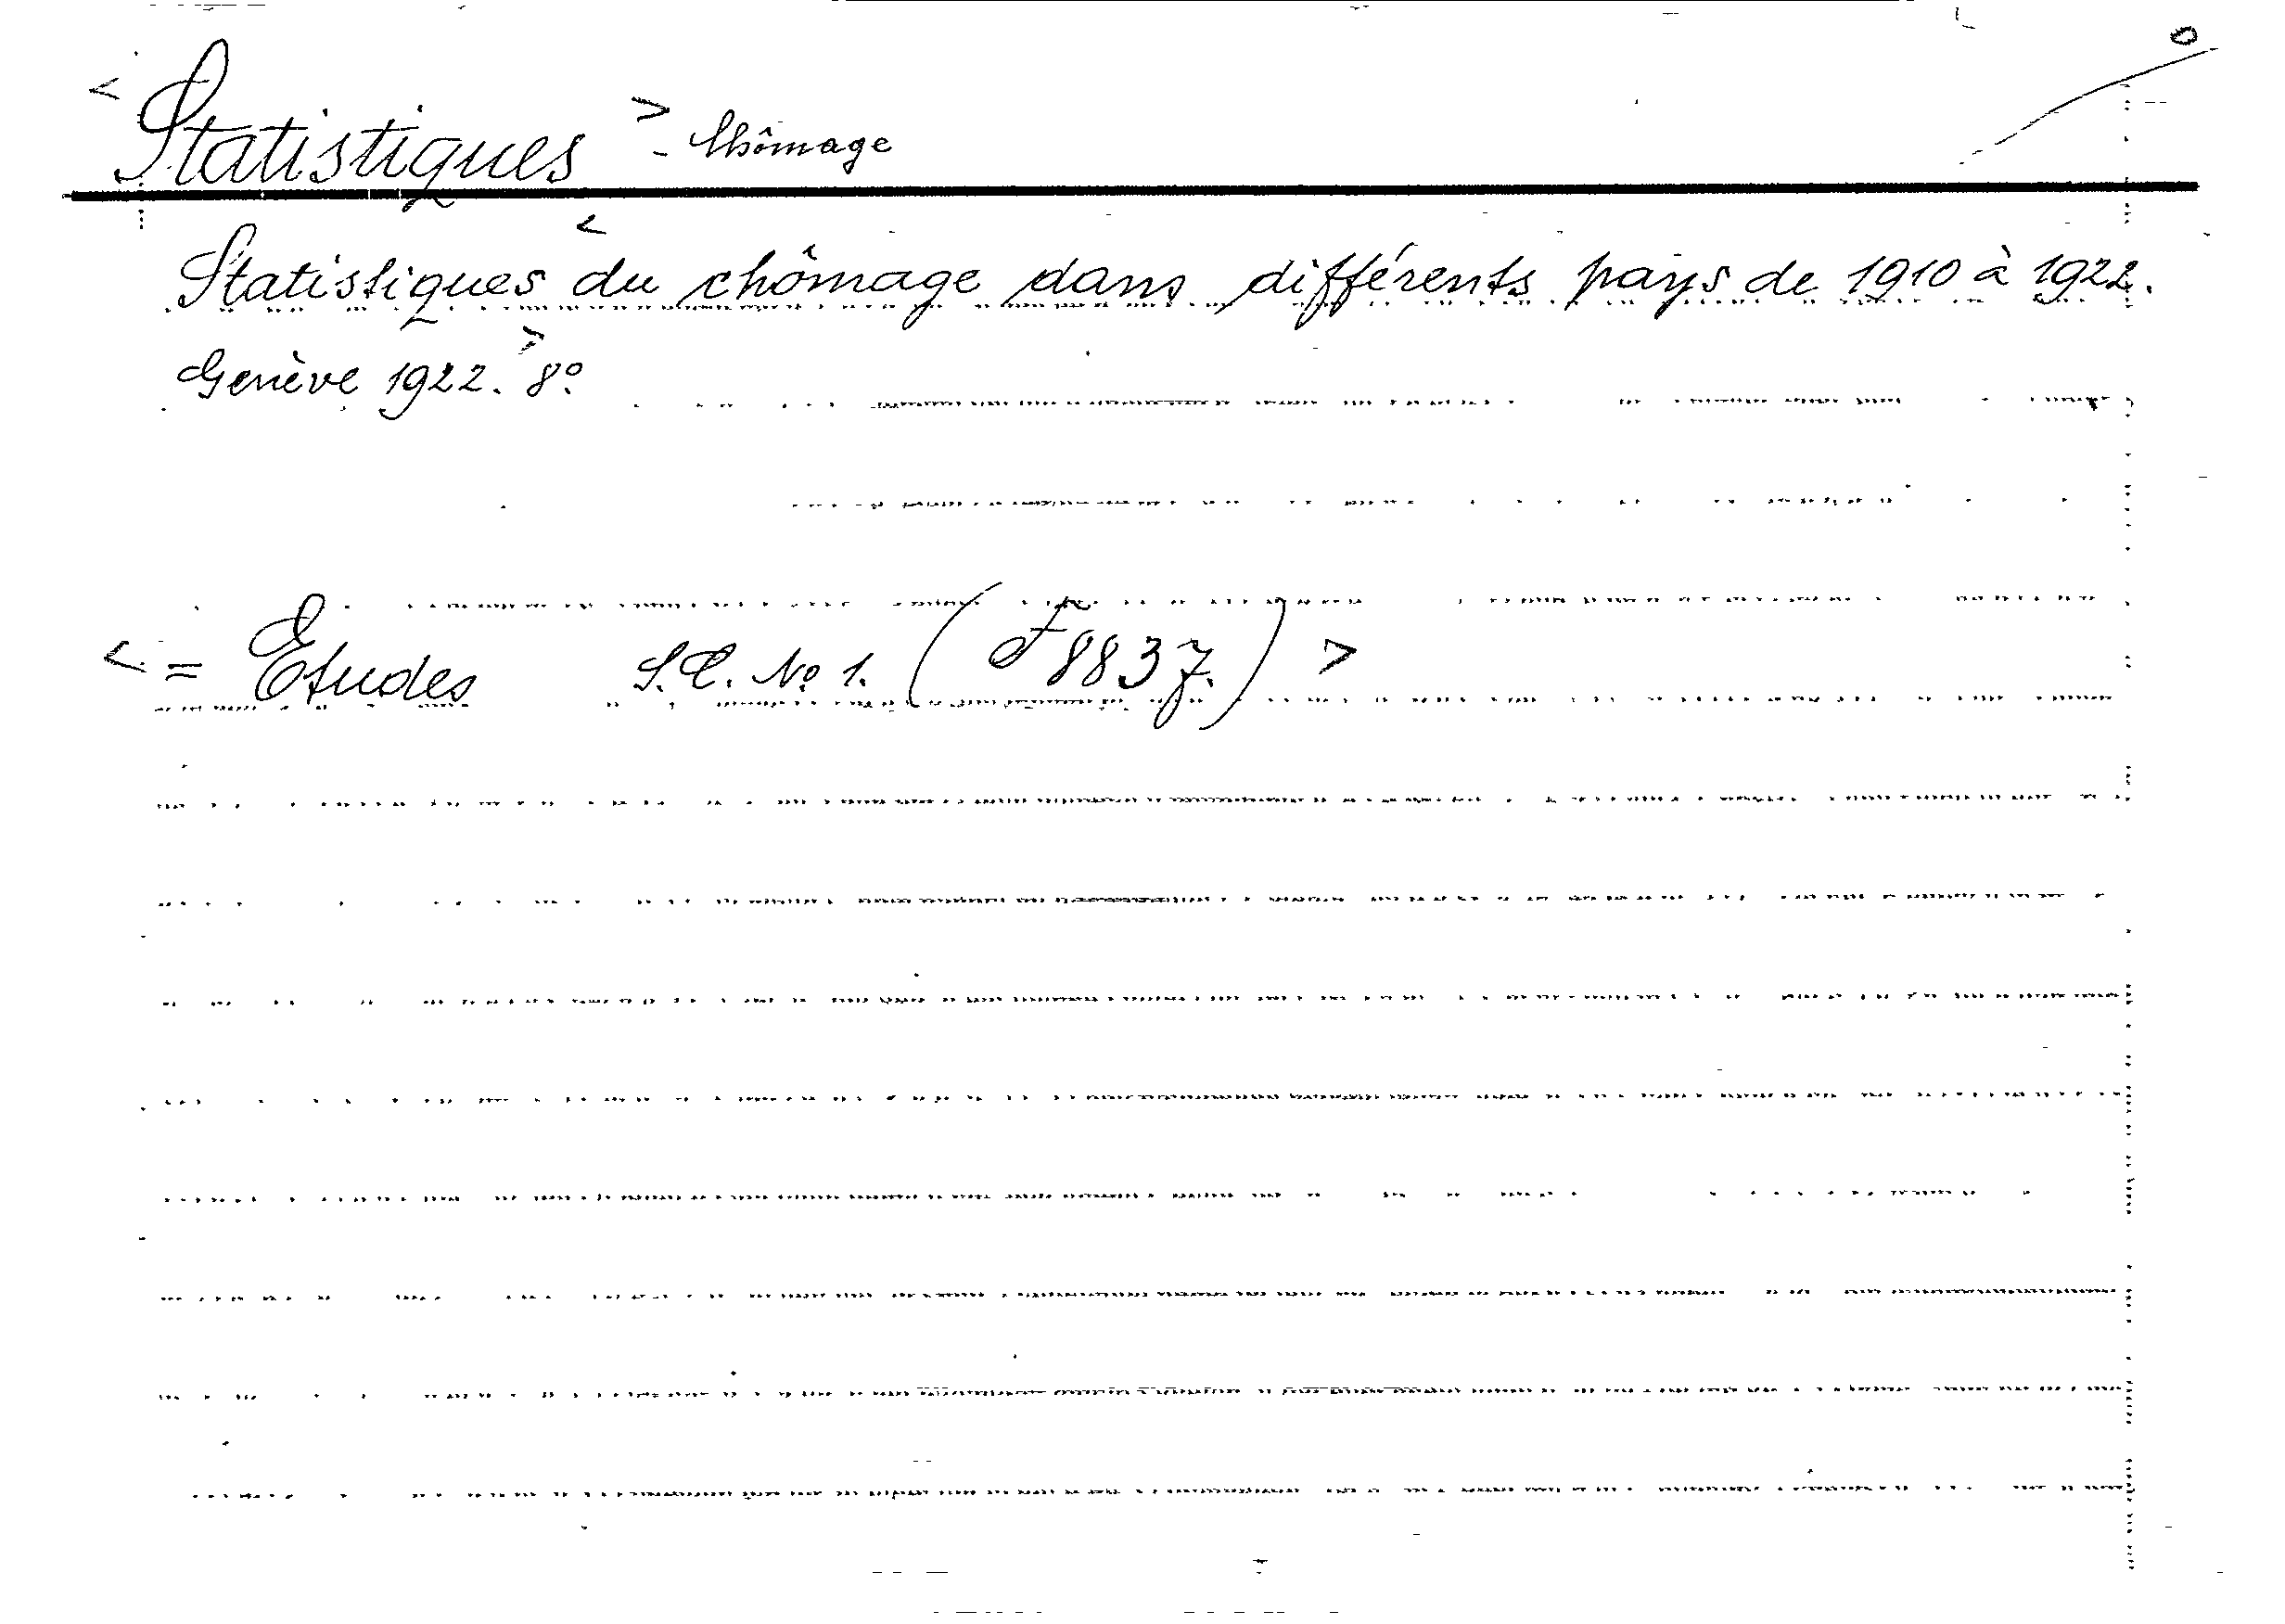 < Statistiques > - Chômage
Statistiques < du chômage dans différents pays de 1910 à 1922.
Genève 1922. > 8º.
< = Etudes S.C. Nº 1. (F 8837.) >